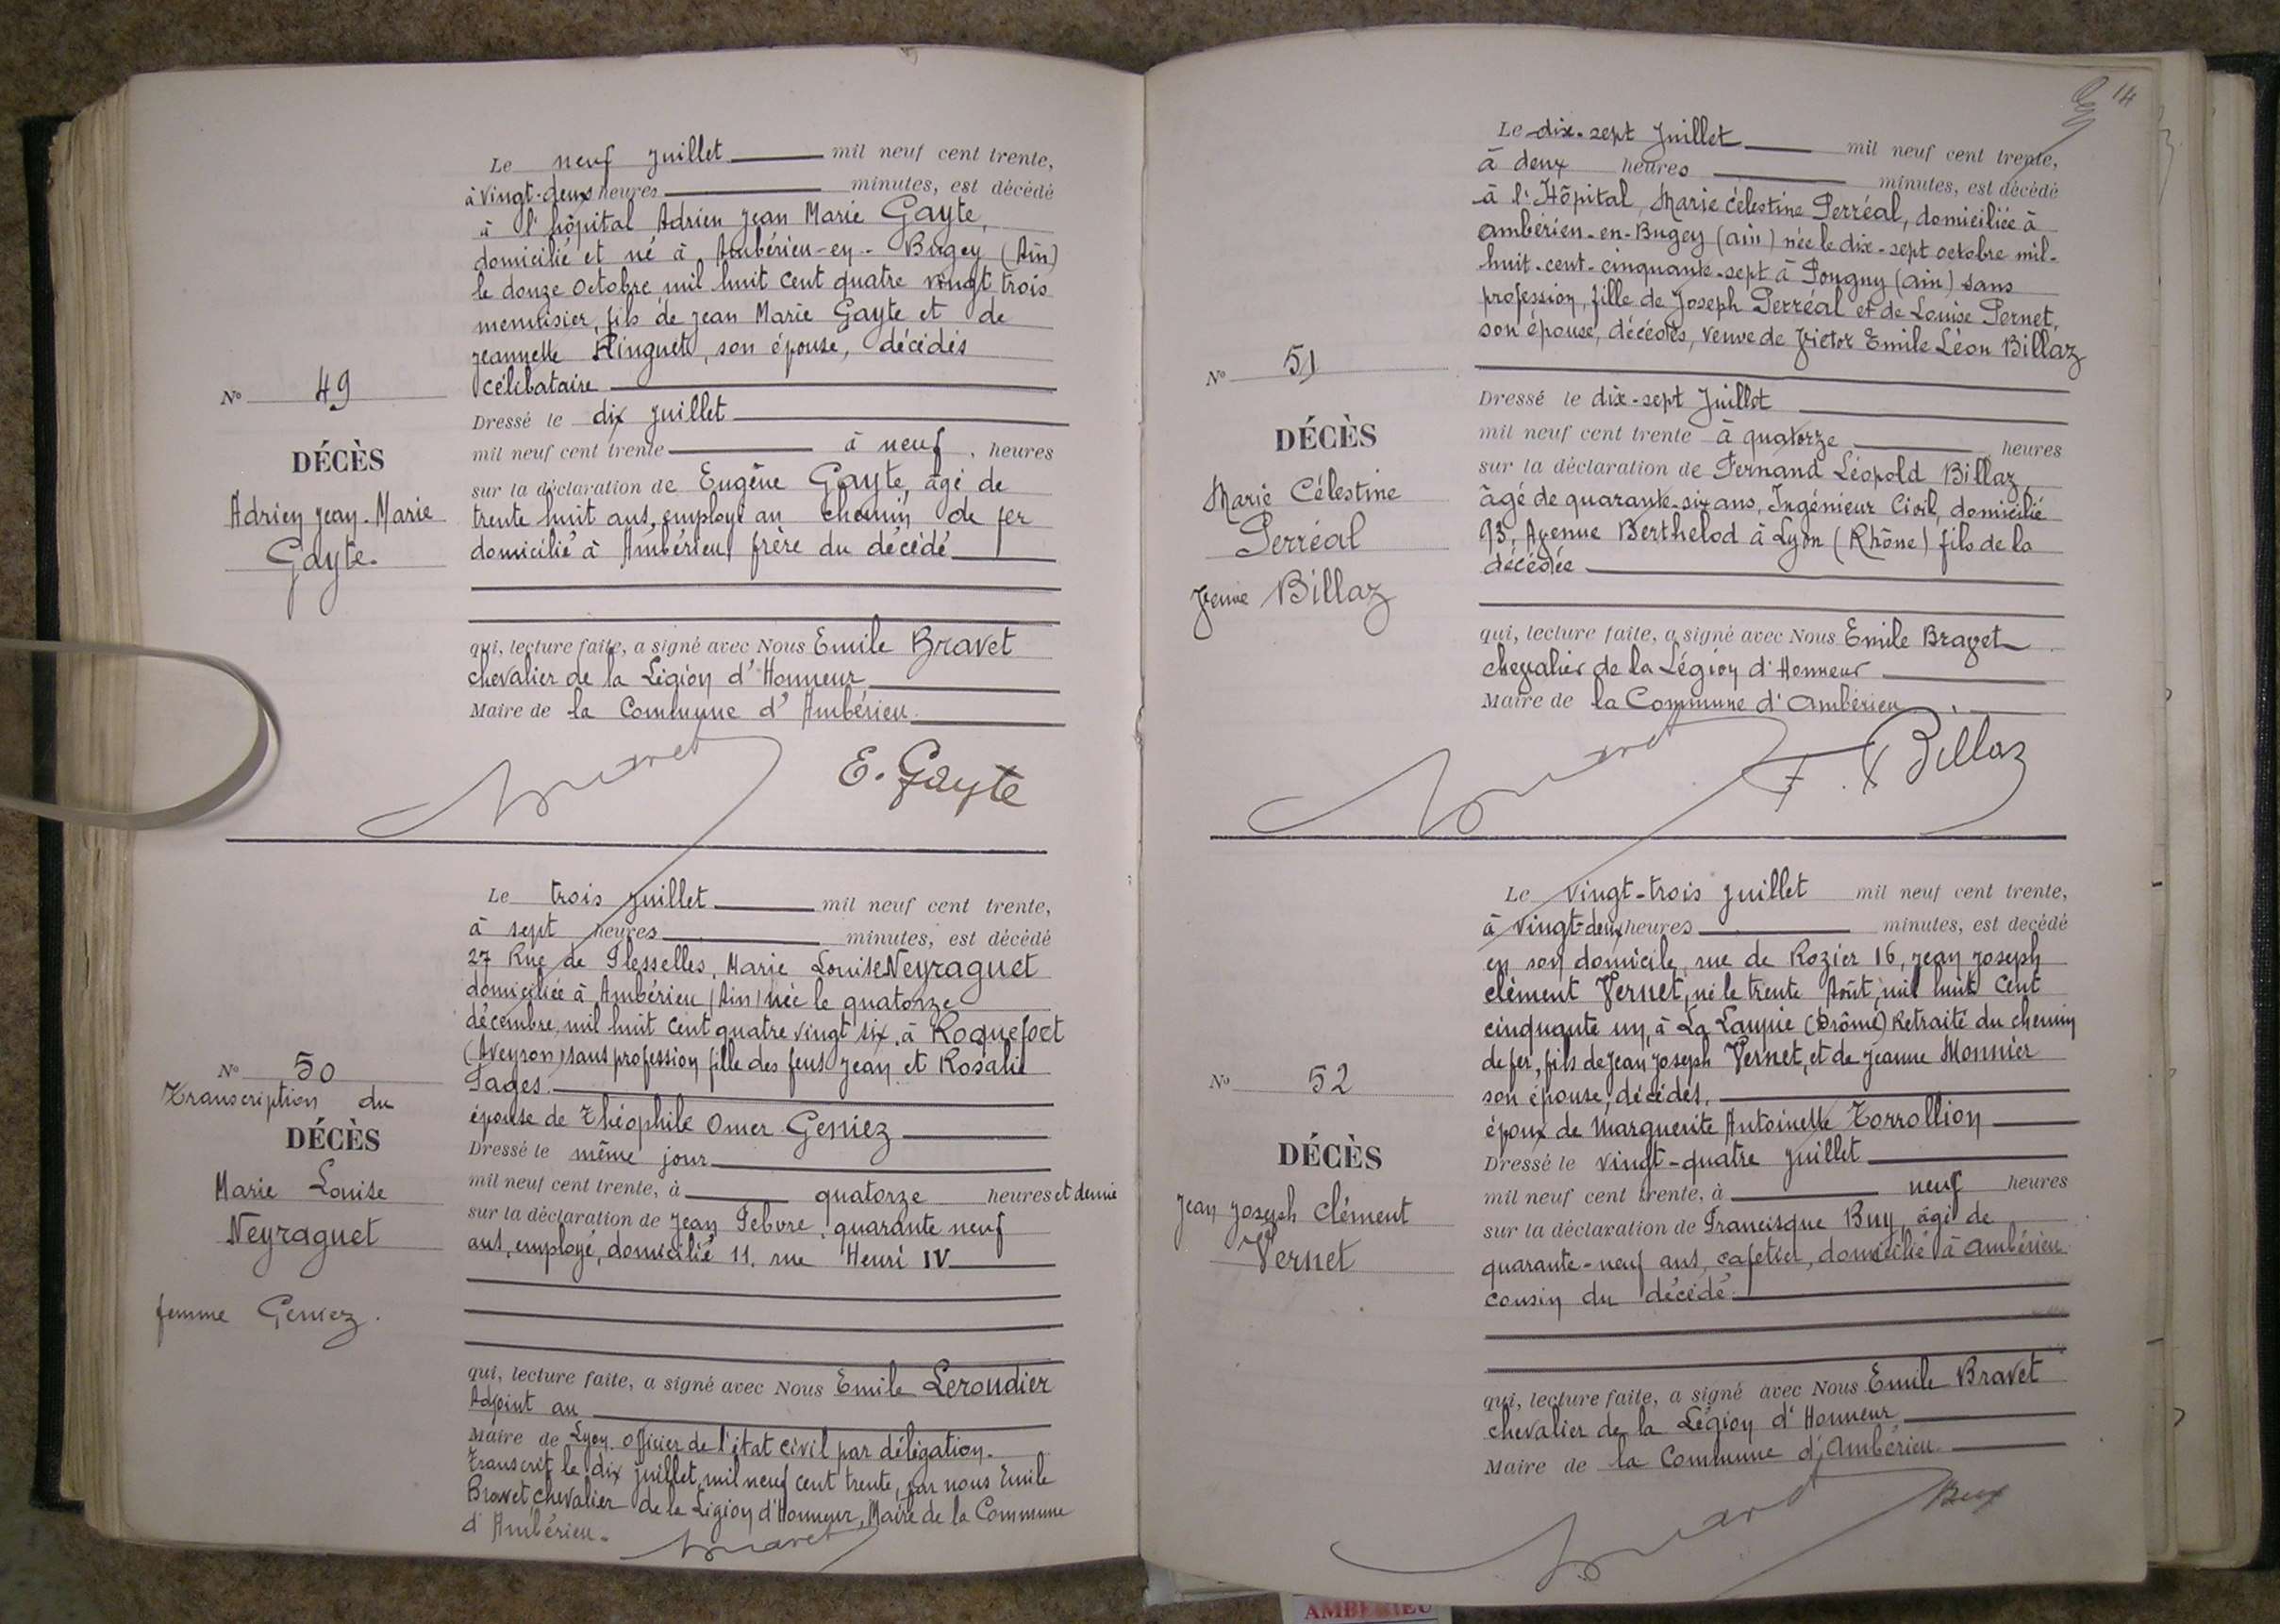 Le neuf juillet mil neuf cent trente,
à vingt-deux heures minutes, est décédé
à l'hôpital Adrien Jean Marie Gayte,
domicilié et né à Ambérieu-en-Bugey (Ain)
le douze octobre mil huit cent quatre vingt trois
menuisier, fils de Jean Marie Gayte et de
Jeannette Hinguet, son épouse, décédés
célibataire
Dressé le dix juillet
mil neuf cent trente à neuf heures
sur la déclaration de Eugène Gayte, âgé de
trente huit ans, employé au chemin de fer
domicilié à Ambérieu frère du décédé
qui, lecture faite, a signé avec Nous Emile Bravet
chevalier de la Légion d'Honneur
Maire de la Commune d'Ambérieu
Bravet E. Gayte
No 49
DÉCÈS
Adrien Jean-Marie
Gayte.
Le trois juillet mil neuf cent trente,
à sept heures minutes, est décédé
27 Rue de Flesselles, Marie Louise Neyraguet
domiciliée à Ambérieu (Ain) née le quatorze
décembre, mil huit cent quatre vingt six, à Roquefort
(Aveyron) sans profession fille des feus Jean et Rosalie
Pages.
épouse de Théophile Omer Geniez
Dressé le même jour
mil neuf cent trente, à quatorze heures et demie
sur la déclaration de Jean Febvre, quarante neuf
ans, employé, domicilié 11, rue Henri IV
qui, lecture faite, a signé avec Nous Emile Leroudier
Adjoint au
Maire de Lyon officier de l'état civil par délégation.
Transcrit le dix juillet mil neuf cent trente, par nous Emile
Bravet chevalier de la Légion d'Honneur, Maire de la Commune
d'Ambérieu.
Bravet
No 50
Transcription du
DÉCÈS
Marie Louise
Neyraguet
femme Geniez.
14
Le dix-sept Juillet mil neuf cent trente,
à deux heures minutes, est décédé
à l'Hôpital, Marie Célestine Perréal, domiciliée à
Ambérieu-en-Bugey (Ain) née le dix-sept octobre mil-
huit-cent-cinquante-sept à Pougny (Ain) sans
profession, fille de Joseph Perréal et de Louise Pernet,
son épouse, décédés, veuve de Victor Emile Léon Billaz
Dressé le dix-sept Juillet
mil neuf cent trente à quatorze heures
sur la déclaration de Fernand Léopold Billaz,
âgé de quarante-six ans, Ingénieur Civil, domicilié
93, Avenue Berthelod à Lyon (Rhône) fils de la
décédée
qui, lecture faite, a signé avec Nous Emile Bravet
chevalier de la Légion d'Honneur
Maire de la Commune d'Ambérieu
Bravet F. Billaz
No 51
DÉCÈS
Marie Célestine
Perréal
Veuve Billaz
Le vingt-trois juillet mil neuf cent trente,
à vingt-deux heures minutes, est decédé
en son domicile, rue de Rozier 16, Jean Joseph
Clément Vernet, né le trente Août, mil huit cent
cinquante un, à La Laupie (Drôme) Retraité du chemin
de fer, fils de Jean Joseph Vernet, et de Jeanne Monnier
son épouse, décédés,
époux de Marguerite Antoinette Torrollion
Dressé le vingt-quatre juillet
mil neuf cent trente, à neuf heures
sur la déclaration de Francisque Buy, âgé de
quarante-neuf ans, cafetier, domicilié à Ambérieu
cousin du décédé
qui, lecture faite, a signé avec Nous Emile Bravet
chevalier de la Légion d'Honneur
Maire de la Commune d'Ambérieu.
Bravet Buy
No 52
DÉCÈS
Jean Joseph Clément
Vernet
AMBERIEU